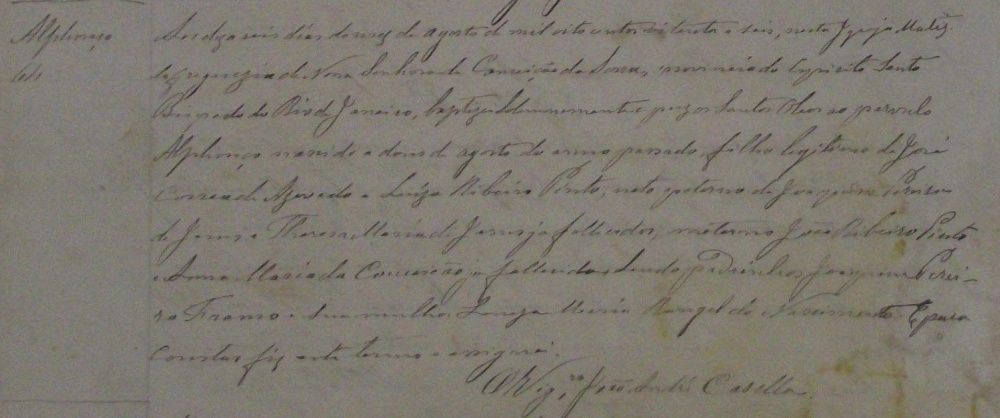 Alphonço
Aos dezaseis dias do mez de agosto de mil oito centos setenta e seis, nesta Igreja Matriz
da Freguezia de Nossa Senhora da Conceição da Serra, provincia do Espirito Santo
Bispado do Rio de Janeiro, baptizei solemnemente e puz os Santos Oleos ao parvulo
Alphonço nascido a dous de agosto do anno passado, filho legitimo de José
Correa de Azevedo e Luiza Ribeiro Pinto, neto paterno de Joaquim Pereira
de Jesus e Theresa Maria de Jesus já fallecidos, materno João Ribeiro Pinto
e Anna Maria da Conceição já fallecidos, sendo padrinhos Joaquim Perei-
ra Franco e sua mulher Maria Rangel do Nascimento. E para
constar fiz este termo e assignei.
O Vig.ro João André Casella